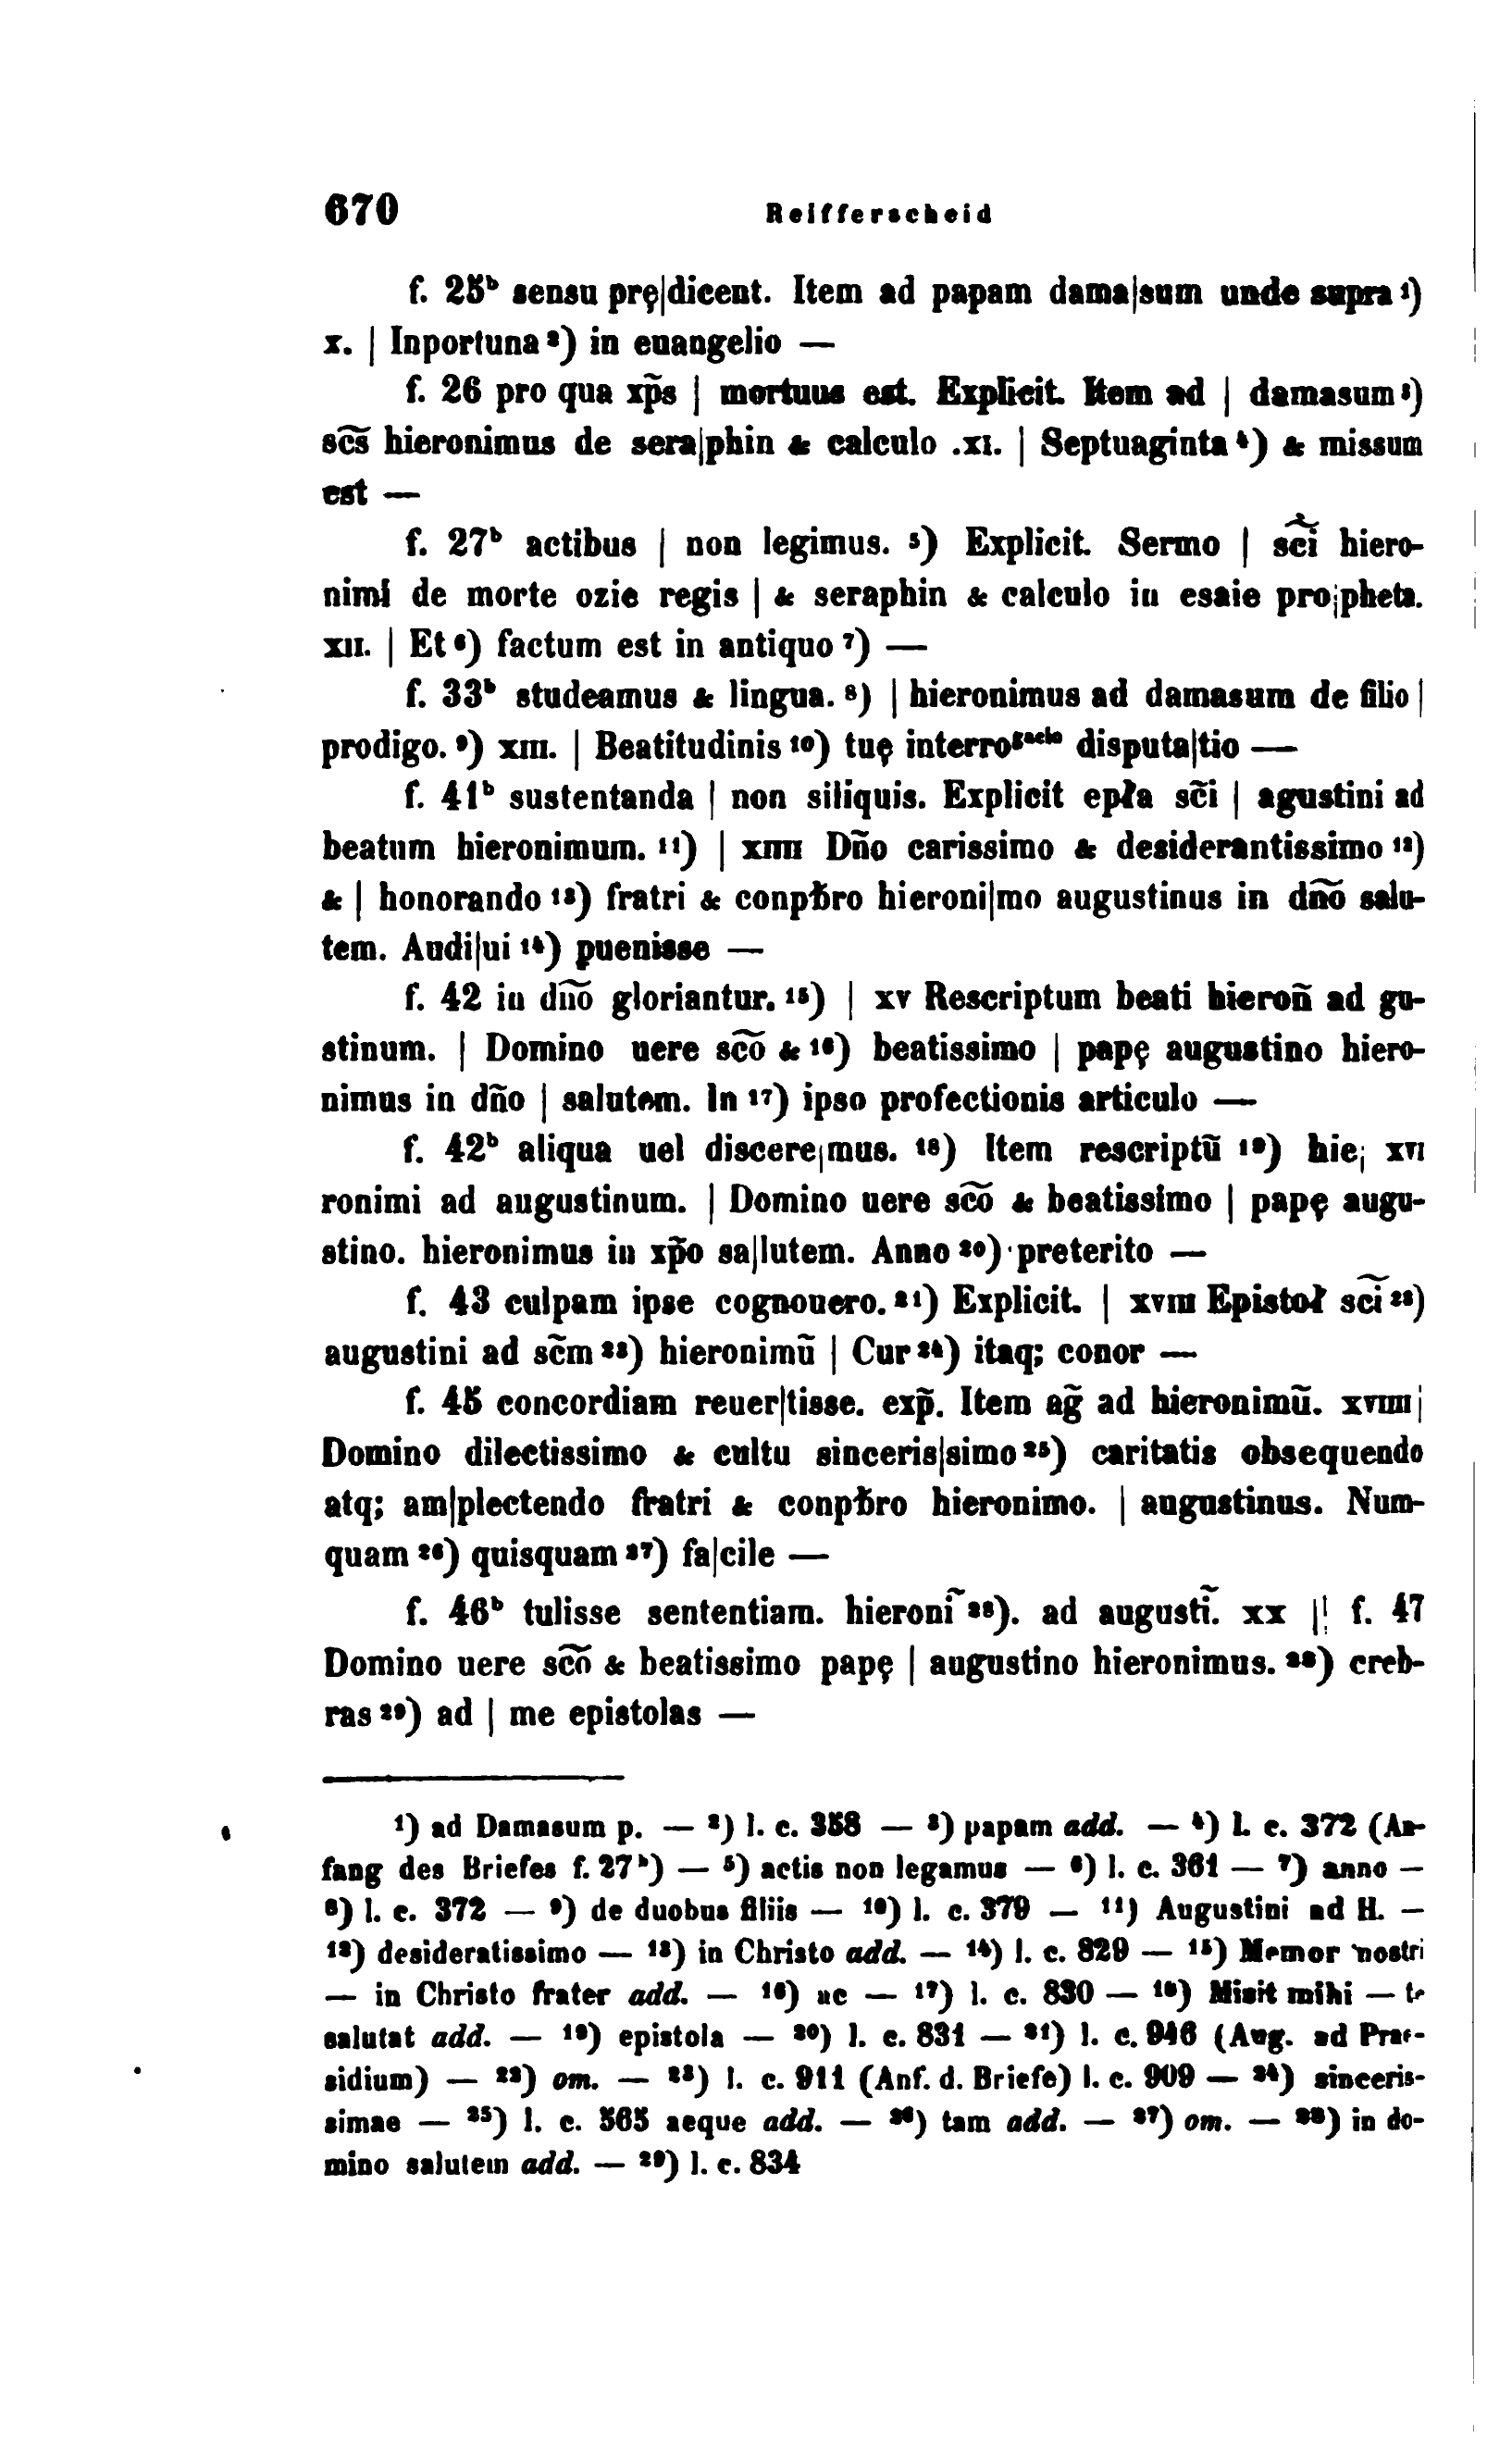 670 Reifferscheid
f. 25ᵇ sensu prę|dicent. Item ad papam dama|sum unde supra ¹)
x. | Inportuna ²) in euangelio —
f. 26 pro qua xp̃s | mortuus est. Explicit. Item ad | damasum ³)
sc̃s hieronimus de sera|phin & calculo .xı. | Septuaginta ⁴) & missum
est —
f. 27ᵇ actibus | non legimus. ⁵) Explicit. Sermo | sc̃i hiero-
nimi de morte ozie regis | & seraphin & calculo in esaie pro|pheta.
xıı. | Et ⁶) factum est in antiquo ⁷) —
f. 33ᵇ studeamus & lingua. ⁸) | hieronimus ad damasum de filio |
prodigo. ⁹) xııı. | Beatitudinis ¹⁰) tuę interroᵍᵃᶜⁱᵒ disputa|tio —
f. 41ᵇ sustentanda | non siliquis. Explicit epƚa sc̃i | agustini ad
beatum hieronimum. ¹¹) | xıııı Dño carissimo & desiderantissimo ¹²)
& | honorando ¹³) fratri & conpƀro hieroni|mo augustinus in dño salu-
tem. Audi|ui ¹⁴) ꝑuenisse —
f. 42 in dño gloriantur. ¹⁵) | xv Rescriptum beati hieroñ ad gu-
stinum. | Domino uere sc̃o & ¹⁶) beatissimo | papę augustino hiero-
nimus in dño | salutem. In ¹⁷) ipso profectionis articulo —
f. 42ᵇ aliqua uel discere|mus. ¹⁸) Item rescriptũ ¹⁹) hie| xvı
ronimi ad augustinum. | Domino uere sc̃o & beatissimo | papę augu-
stino. hieronimus in xp̃o sa|lutem. Anno ²⁰) preterito —
f. 43 culpam ipse cognouero. ²¹) Explicit. | xvııı Epistoƚ sc̃i ²²)
augustini ad sc̃m ²³) hieronimũ | Cur ²⁴) itaq; conor —
f. 45 concordiam reuer|tisse. exp̃. Item ag̃ ad hieronimũ. xvıııı |
Domino dilectissimo & cultu sinceris|simo ²⁵) caritatis obsequendo
atq; am|plectendo fratri & conpƀro hieronimo. | augustinus. Num-
quam ²⁶) quisquam ²⁷) fa|cile —
f. 46ᵇ tulisse sententiam. hieronĩ ²⁸). ad augustĩ. xx || f. 47
Domino uere sc̃o & beatissimo papę | augustino hieronimus. ²⁸) creb-
ras ²⁹) ad | me epistolas —
¹) ad Damasum p. — ²) l. c. 358 — ³) papam add. — ⁴) l. c. 372 (An-
fang des Briefes f. 27ᵇ) — ⁵) actis non legamus — ⁶) l. c. 361 — ⁷) anno —
⁸) l. c. 372 — ⁹) de duobus filiis — ¹⁰) l. c. 379 — ¹¹) Augustini ad H. —
¹²) desideratissimo — ¹³) in Christo add. — ¹⁴) l. c. 829 — ¹⁵) Memor nostri
— in Christo frater add. — ¹⁶) ac — ¹⁷) l. c. 830 — ¹⁸) Misit mihi — te
salutat add. — ¹⁹) epistola — ²⁰) l. c. 831 — ²¹) l. c. 946 (Aug. ad Prae-
sidium) — ²²) om. — ²³) l. c. 911 (Anf. d. Briefe) l. c. 909 — ²⁴) sinceris-
simae — ²⁵) l. c. 565 aeque add. — ²⁶) tam add. — ²⁷) om. — ²⁸) in do-
mino salutem add. — ²⁹) l. c. 834